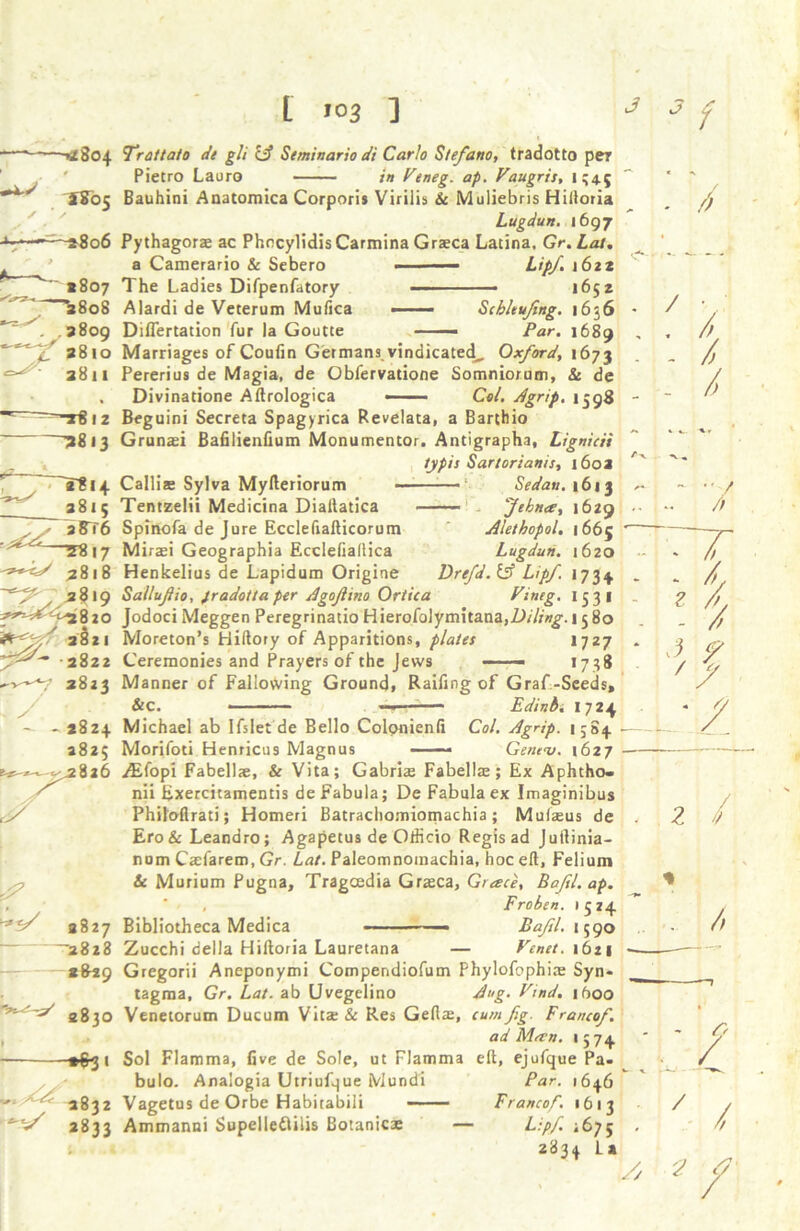 [ 103 ]
2804 Trattato de gli & Seminario di Carlo Stefano, tradotto per
Pietro Lauro —— in Veneg. ap. Vaugris, 1545
2805 Bauhini Anatomica Corporis Virilis & Muliebris Hiſtoria
Lugdun. 1697
2806 Pythagoræ ac Phocylidis Carmina Græca Latina, Gr. Lat.
a Camerario & Sebero —— Lipſ. 1622
2807 The Ladies Diſpenſatory —— 1652
2808 Alardi de Veterum Muſica —— Schleuſing. 1636
2809 Diſſertation ſur la Goutte —— Par. 1689
2810 Marriages of Couſin Germans vindicated, Oxford, 1673
2811 Pererius de Magia, de Obſervatione Somniorum, & de
Divinatione Aſtrologica —— Col. Agrip. 1598
2812 Beguini Secreta Spagyrica Revelata, a Barthio
2813 Grunæi Baſilienſium Monumentor. Antigrapha, Lignicii
typis Sartorianis, 1602
2814 Calliæ Sylva Myſteriorum —— Sedan. 1613
2815 Tentzelii Medicina Diaſtatica —— Jehnæ, 1629
2816 Spinoſa de Jure Eccleſiaſticorum Alethopol. 1665
2817 Miræi Geographia Eccleſiaſtica Lugdun. 1620
2818 Henkelius de Lapidum Origine Dreſd. & Lipſ. 1734
2819 Salluſtio, tradotta per Agoſtino Ortica Vineg. 1531
2820 Jodoci Meggen Peregrinatio Hieroſolymitana, Diling. 1580
2821 Moreton's Hiſtory of Apparitions, plates 1727
2822 Ceremonies and Prayers of the Jews —— 1738
2823 Manner of Fallowing Ground, Raiſing of Graſ-Seeds,
&c. —— —— Edinb. 1724
2824 Michael ab Iſslet de Bello Colonienſi Col. Agrip. 1584
2825 Moriſoti Henricus Magnus —— Genev. 1627
2826 Æſopi Fabellæ, & Vita; Gabriæ Fabellæ; Ex Aphtho-
nii Exercitamentis de Fabula; De Fabula ex Imaginibus
Philoſtrati; Homeri Batrachomiomachia; Muſæus de
Ero & Leandro; Agapetus de Officio Regis ad Juſtinia-
num Cæſarem, Gr. Lat. Paleomnomachia, hoc eſt, Felium
& Murium Pugna, Tragœdia Græca, Græcè, Baſil. ap.
Froben. 1524
2827 Bibliotheca Medica —— Baſil. 1590
2828 Zucchi della Hiſtoria Lauretana — Venet. 1621
2829 Gregorii Aneponymi Compendioſum Phyloſophiæ Syn-
tagma, Gr. Lat. ab Uvegelino Aug. Vind. 1600
2830 Venetorum Ducum Vitæ & Res Geſtæ, cum fig. Francof.
ad Mæn. 1574
2831 Sol Flamma, ſive de Sole, ut Flamma eſt, ejuſque Pa-
bulo. Analogia Utriuſque Mundi Par. 1646
2832 Vagetus de Orbe Habitabili —— Francof. 1613
2833 Ammanni Supellectilis Botanicæ — Lipſ. 1675
2834 La